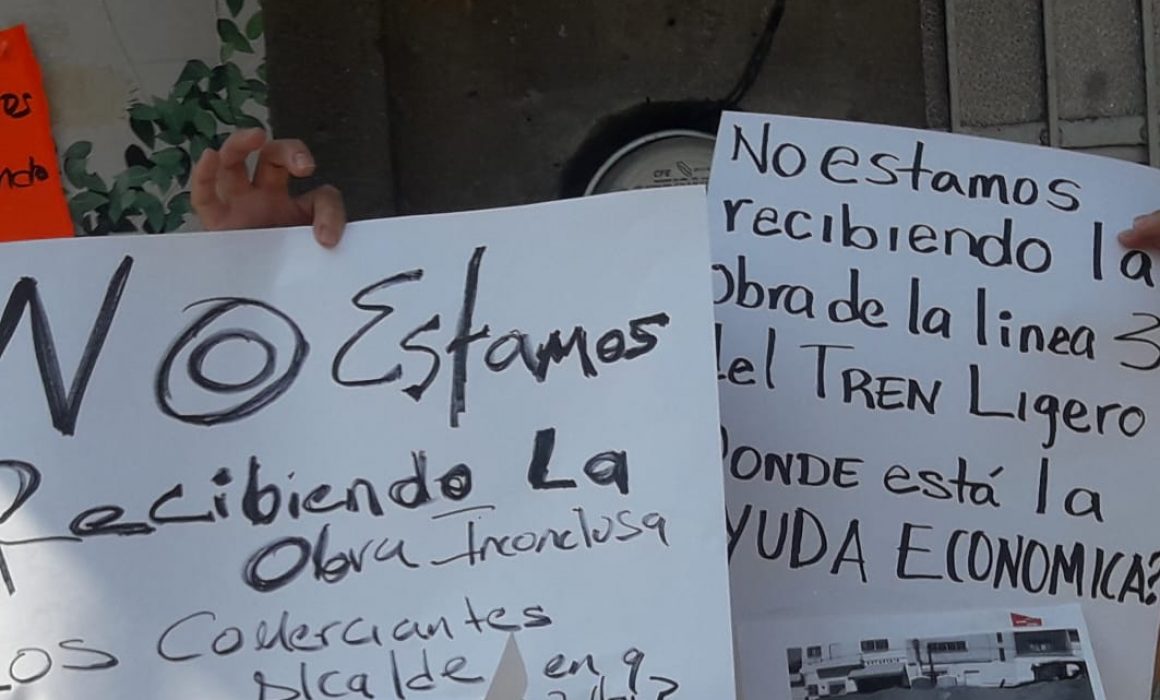 CFE
No Estamos
Recibiendo La
Obra Inconclusa
Los Comerciantes
Alcalde en q
No estamos
recibiendo la
obra de la linea 3
del TREN LIgero
DONDE está la
AYUDA ECONOMICA?